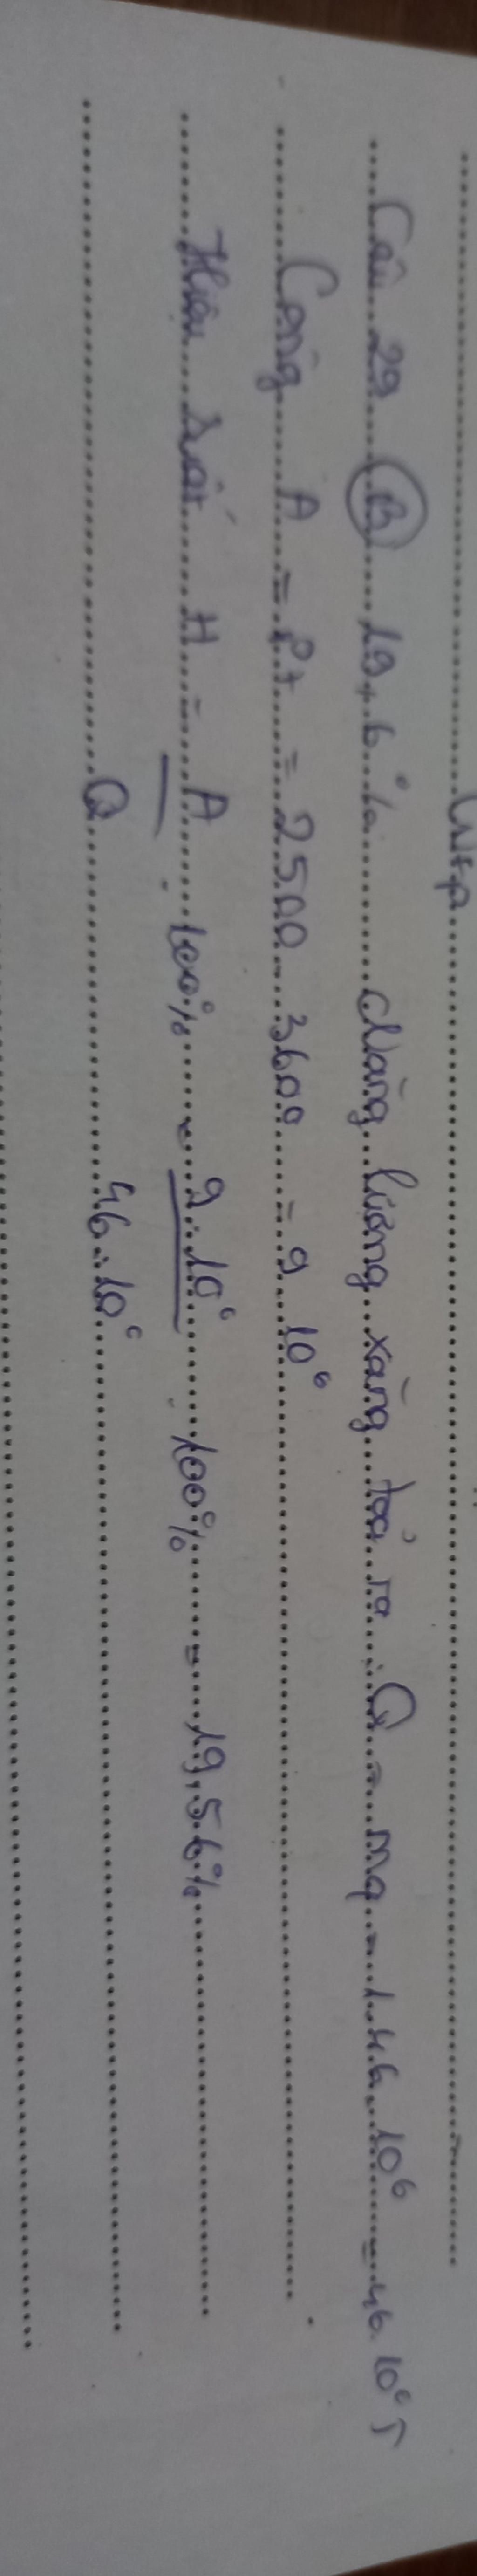 Câu 29 (B) 19,6% Năng lượng xăng toả ra: Q = mq = 1.46.10⁶ = 46.10⁶ J
Công A = Pt = 2500.3600 = 9.10⁶
Hiệu suất H = A/Q . 100% = 9.10⁶/46.10⁶ . 100% = 19,56%